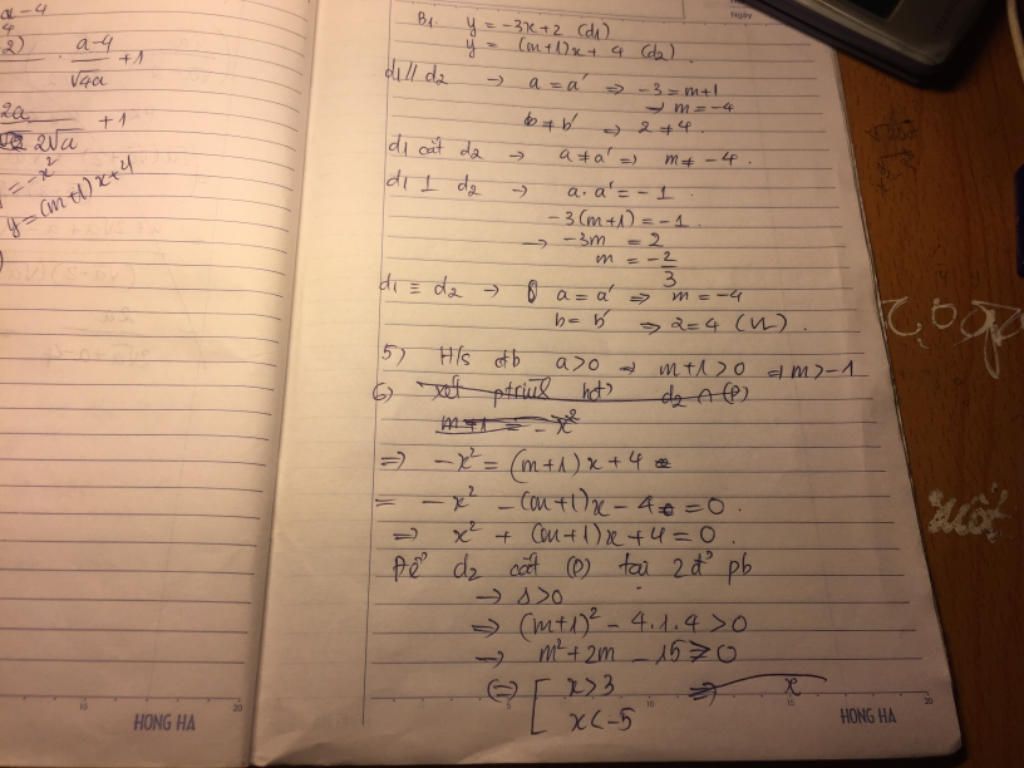 a-4
4
2) . a-4/√4a +1
2a / 2√a +1
= -x²
y = (m+1)x+4
B1. y = -3x+2 (d1)
y = (m+1)x + 4 (d2).
d1 // d2 → a = a' ⇒ -3 = m+1
→ m = -4
b ≠ b' ⇒ 2 ≠ 4.
d1 cắt d2 → a ≠ a' ⇒ m ≠ -4.
d1 ⊥ d2 → a.a' = -1.
-3(m+1) = -1
→ -3m = 2
m = -2/3
d1 ≡ d2 → a = a' ⇒ m = -4
b = b' ⇒ 2 = 4 (VL).
5) H/s đb a>0 → m+1>0 ⇒ m>-1
6) xét ptrình hđ) d2 ∩ (P)
m+1 = -x²
⇒ -x² = (m+1)x+4
= -x² - (m+1)x - 4 = 0.
⇒ x² + (m+1)x + 4 = 0.
Để d2 cắt (P) tại 2đ' pb
→ Δ>0
⇒ (m+1)² - 4.1.4 > 0
→ m² + 2m - 15 > 0
(⇒) [ x > 3 ⇒ x
x < -5
15 20
HONG HA
5 10 15 20
HONG HA
Ngày